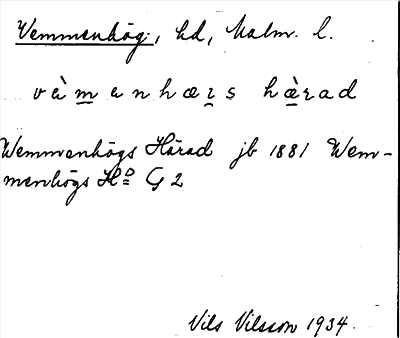 Vemmenhög, hd, Malm. l.
vàmanhæɪs hæ̀ɪad
Wemmenhögs Härad jb 1881 Wem-
menhögs Hd G 2
Nils Nilsson 1934.